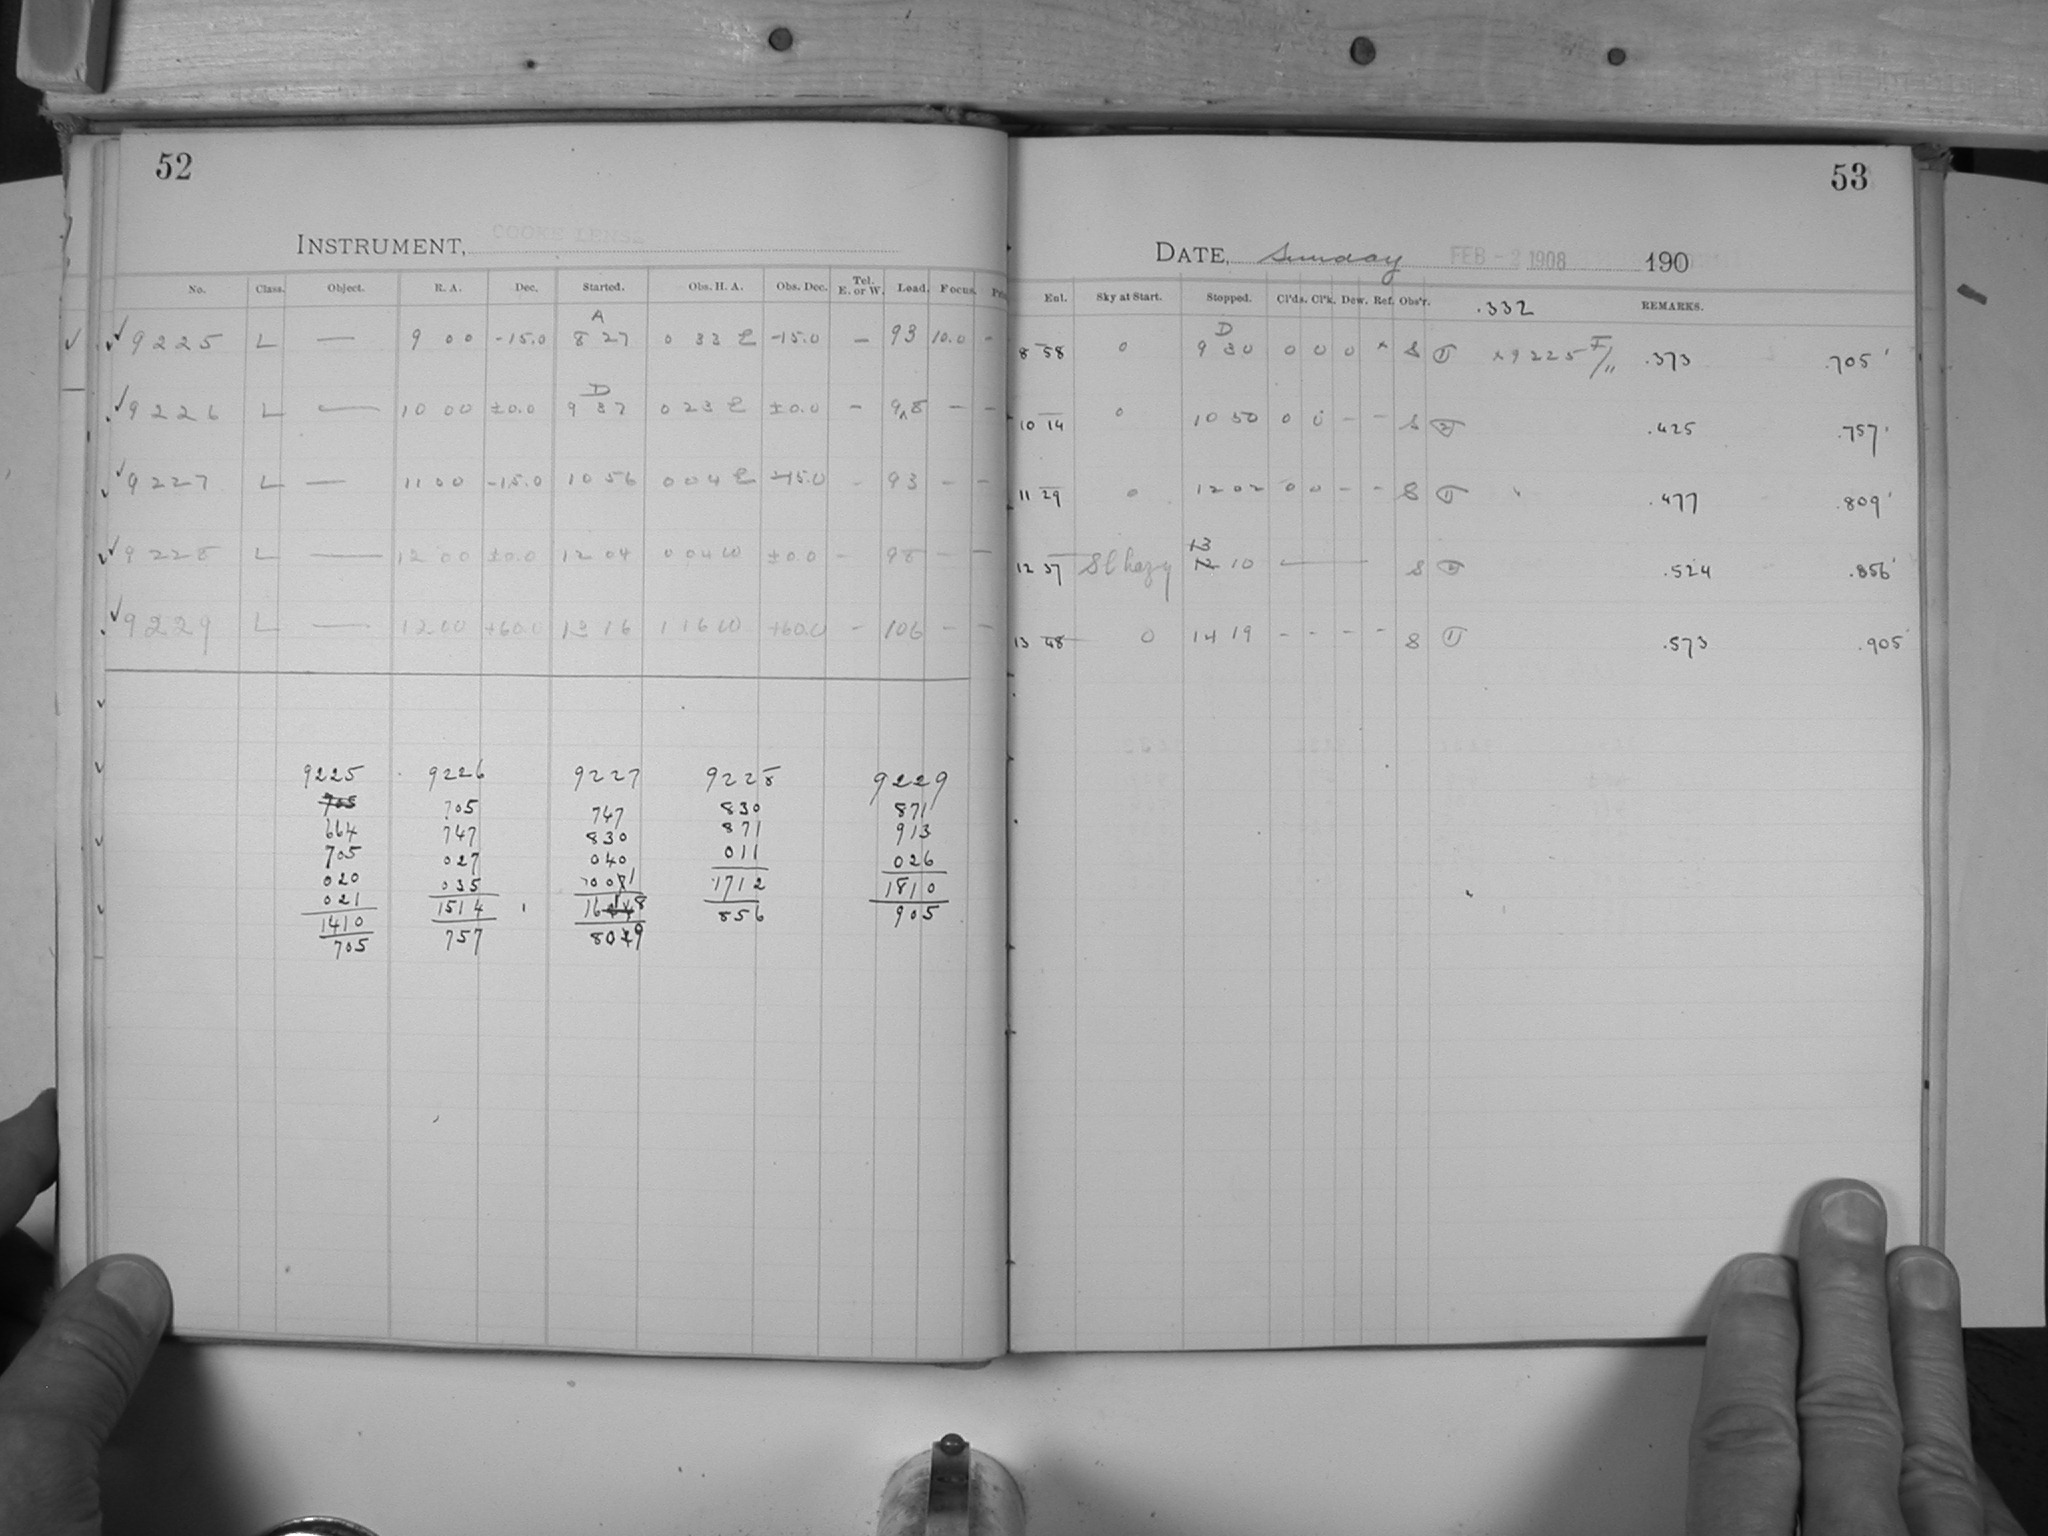 52
INSTRUMENT, COOKE LENSE
No. Class. Object. R. A. Dec. Started. Obs. H. A. Obs. Dec. Tel. E. or W. Load. Focus.
A
9225 L — 9 00 -15.0 8 27 0 33 E -15.0 — 93 10.0 -
D
9226 L — 10 00 ±0.0 9 37 0 23 E ±0.0 - 98 - -
9227 L — 11 00 -15.0 10 56 0 04 E -15.0 - 93 - -
9228 L — 12 00 ±0.0 12 04 0 04 W ±0.0 - 98 - -
9229 L — 12 00 +60.0 13 16 1 16 W +60.0 - 106 - -
9225 9226 9227 9228 9229
705 705 747 830 871
664 747 830 871 913
705 027 040 011 026
020 035 001 1712 1810
021 1514 1618 856 905
1410 757 809
705
53
DATE, Sunday FEB - 2 1908 190
Eul. Sky at Start. Stopped. Cl'ds. Cl'k. Dew. Ref. Obs'r. .332 REMARKS.
D
8 58 0 9 30 0 0 0 * S ① * 9225 I/11 .373 .705
10 14 0 10 50 0 0 - - S ② .425 .757
11 29 0 12 02 0 0 - - S ① .477 .809
13
12 37 Sl hazy 12 10 — S ② .524 .856
13 48 0 14 19 - - - - S ① .573 .905